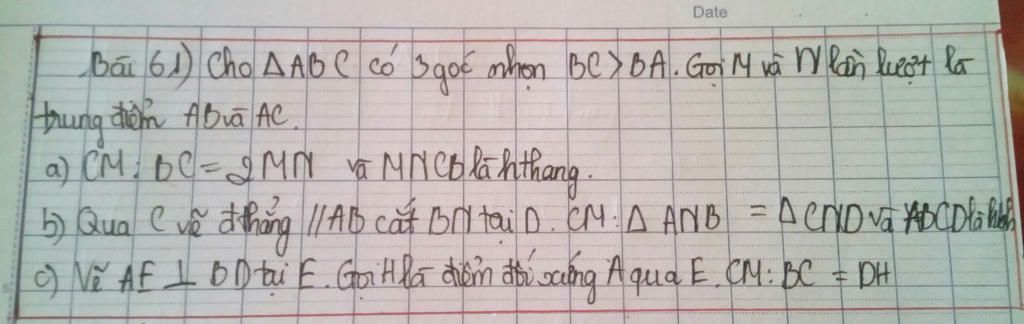 Date
Bài 61) Cho ΔABC có 3 góc nhọn BC > BA. Gọi M và N lần lượt là
trung điểm AB và AC.
a) CM: BC = 2MN và MNCB là hthang.
b) Qua C vẽ đthẳng // AB cắt BN tại D. CM: Δ ANB = Δ CND và ABCD là hbh
c) Vẽ AE ⊥ BD tại E. Gọi H là điểm đối xứng A qua E. CM: BC = DH